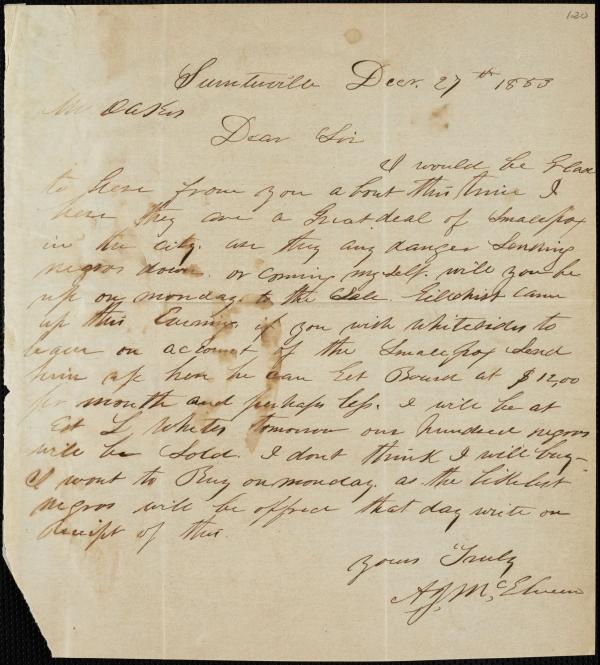 120
Sumterville Decr. 27th 1853
Mr Oakes
Dear Sir
I would be Glad
to hear from you about this time I
hear they are a Great deal of Smallpox
in the city. are they any danger Sending
negros down. or coming myself. will you be
up on monday to the Sale. Gilchrist came
up this Evening if you wish Whitesides to
leave on account of the Smallpox Send
him up here he can Get Board at $12,00
pr month and perhaps less. I will be at
Est L Whites tomorrow one hundred negros
will be Sold. I dont think I will buy-
I want to Buy on monday. as the likelist
negros will be offred that day write on
Receipt of this.
yours Truly
A J McElveen